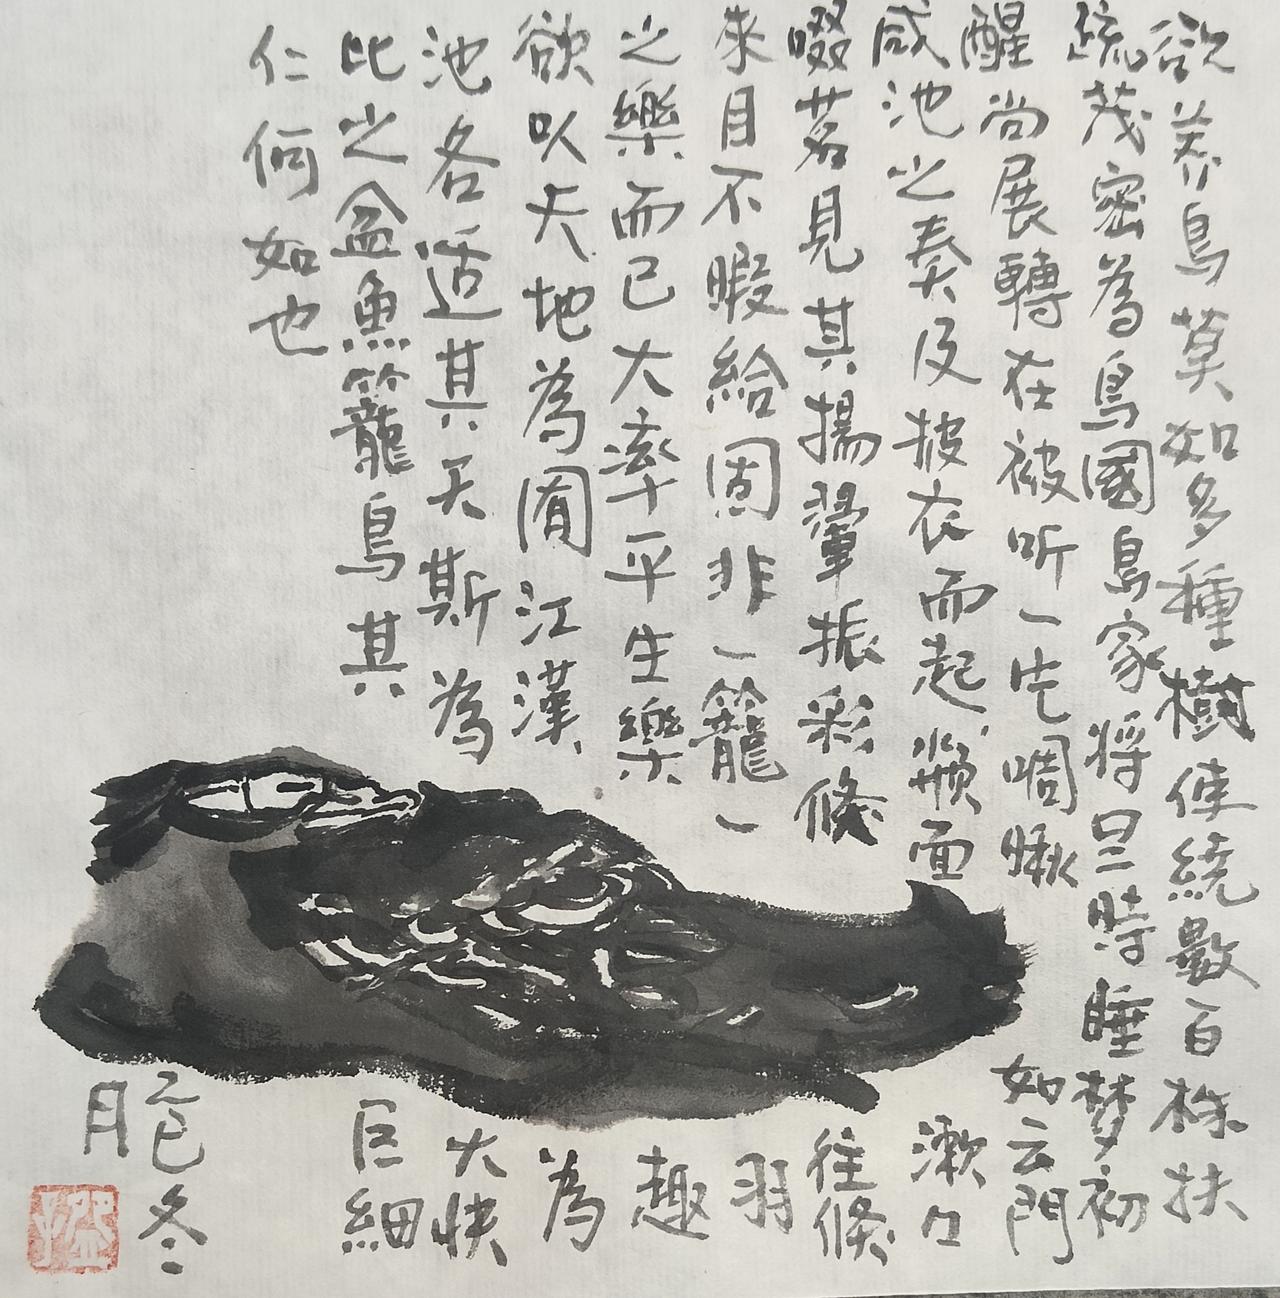 欲养鳥莫如多種樹使繞數百株扶
疏茂密為鳥國鳥家将旦時睡梦初
醒尚展轉在被听一片啁啾如云門
咸池之奏及披衣而起頮面漱口
啜茗見其揚翬振彩倏往倏
來目不暇給固非一籠一羽
之樂而已大率平生樂趣
欲以天地為囿江漢為
池各适其天斯為大快
比之盆魚籠鳥其巨細
仁何如也
乙巳冬
月